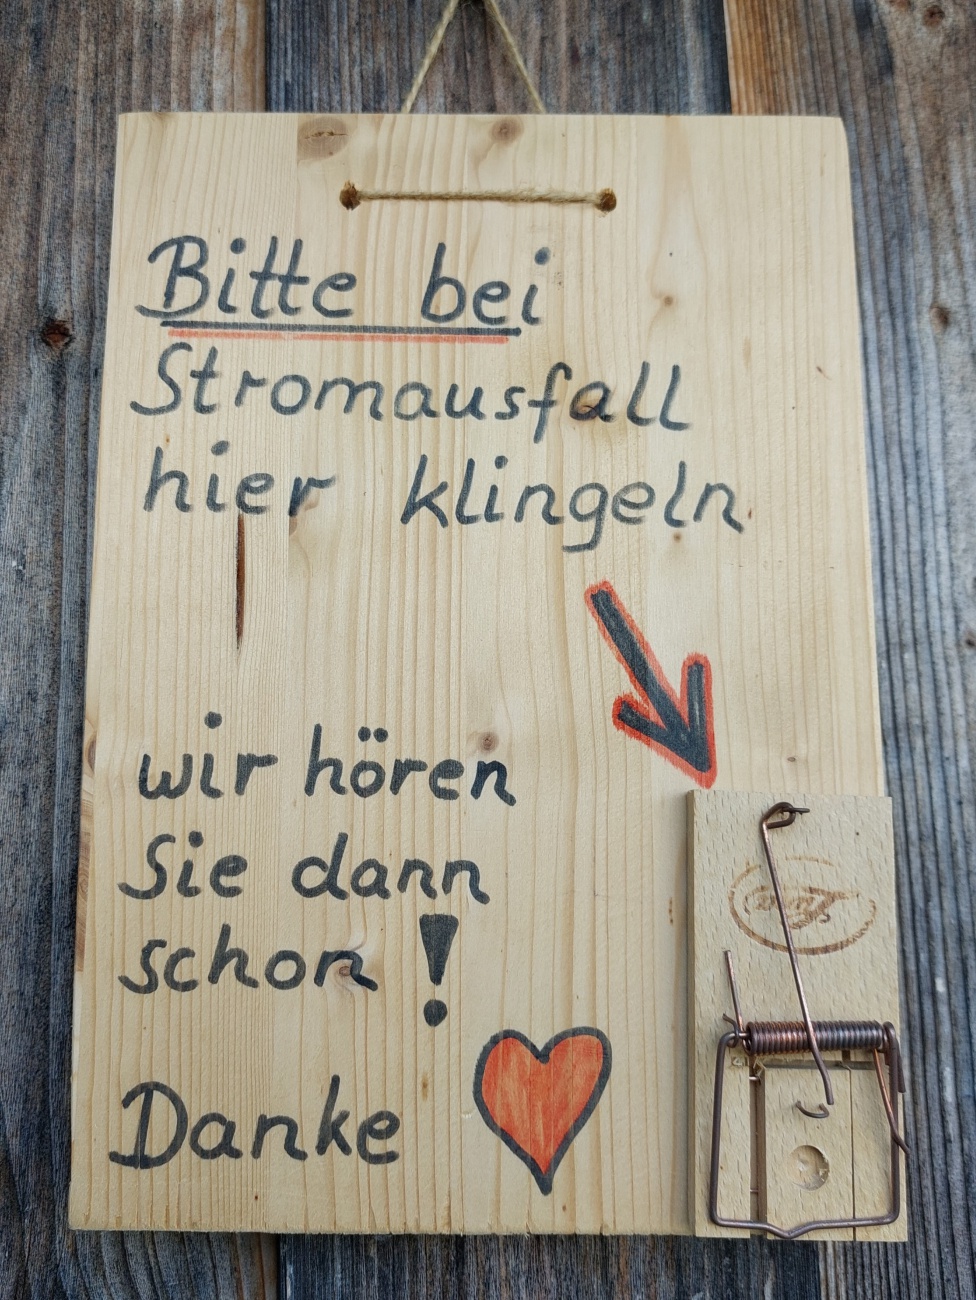 Bitte bei
Stromausfall
hier klingeln
wir hören
Sie dann
schon!
Danke